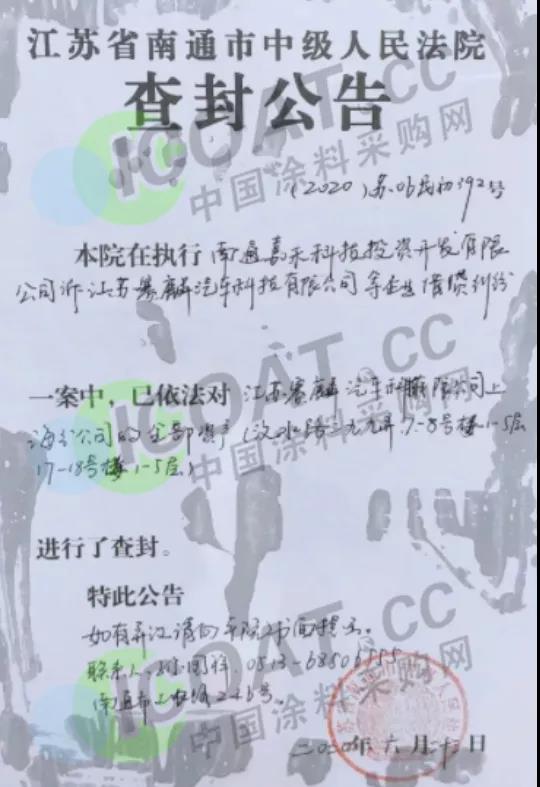 江苏省南通市中级人民法院
查封公告
(2020)苏06民初392号
本院在执行 南通嘉禾科技投资开发有限
公司诉江苏赛麟汽车科技有限公司等企业借贷纠纷
一案中,已依法对 江苏赛麟汽车科技有限公司上
海分公司的全部资产(汶水路二九九弄7-8号楼1-5层
17-18号楼1-5层)
进行了查封。
特此公告
如有异议请向本院书面提出。
联系人: 0513-68506
南通市工农路246号。
二〇二〇年六月二十三日
ICOAT.CC
中国涂料采购网
ICOAT.CC
中国涂料采购网
ICOAT.CC
中国涂料采购网